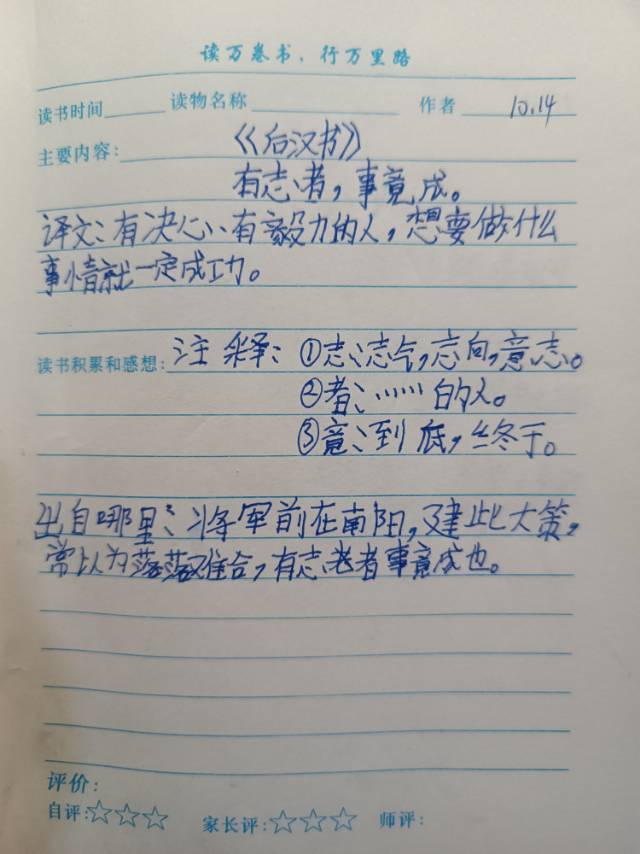 读万卷书，行万里路
读书时间 读物名称 作者 10.14
主要内容： 《后汉书》
有志者，事竟成。
译文：有决心、有毅力的人，想要做什么
事情就一定成功。
读书积累和感想： 注释：①志：志气，志向，意志。
②者：…… 的人。
③竟：到底，终于。
出自哪里：将军前在南阳，建此大策，
常以为落落难合，有志者事竟成也。
评价：
自评：☆☆☆ 家长评：☆☆☆ 师评：